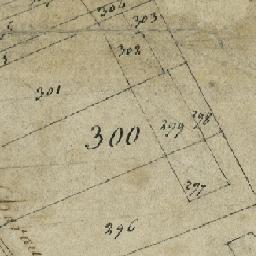 304
303
302
301
300
299
298
297
296